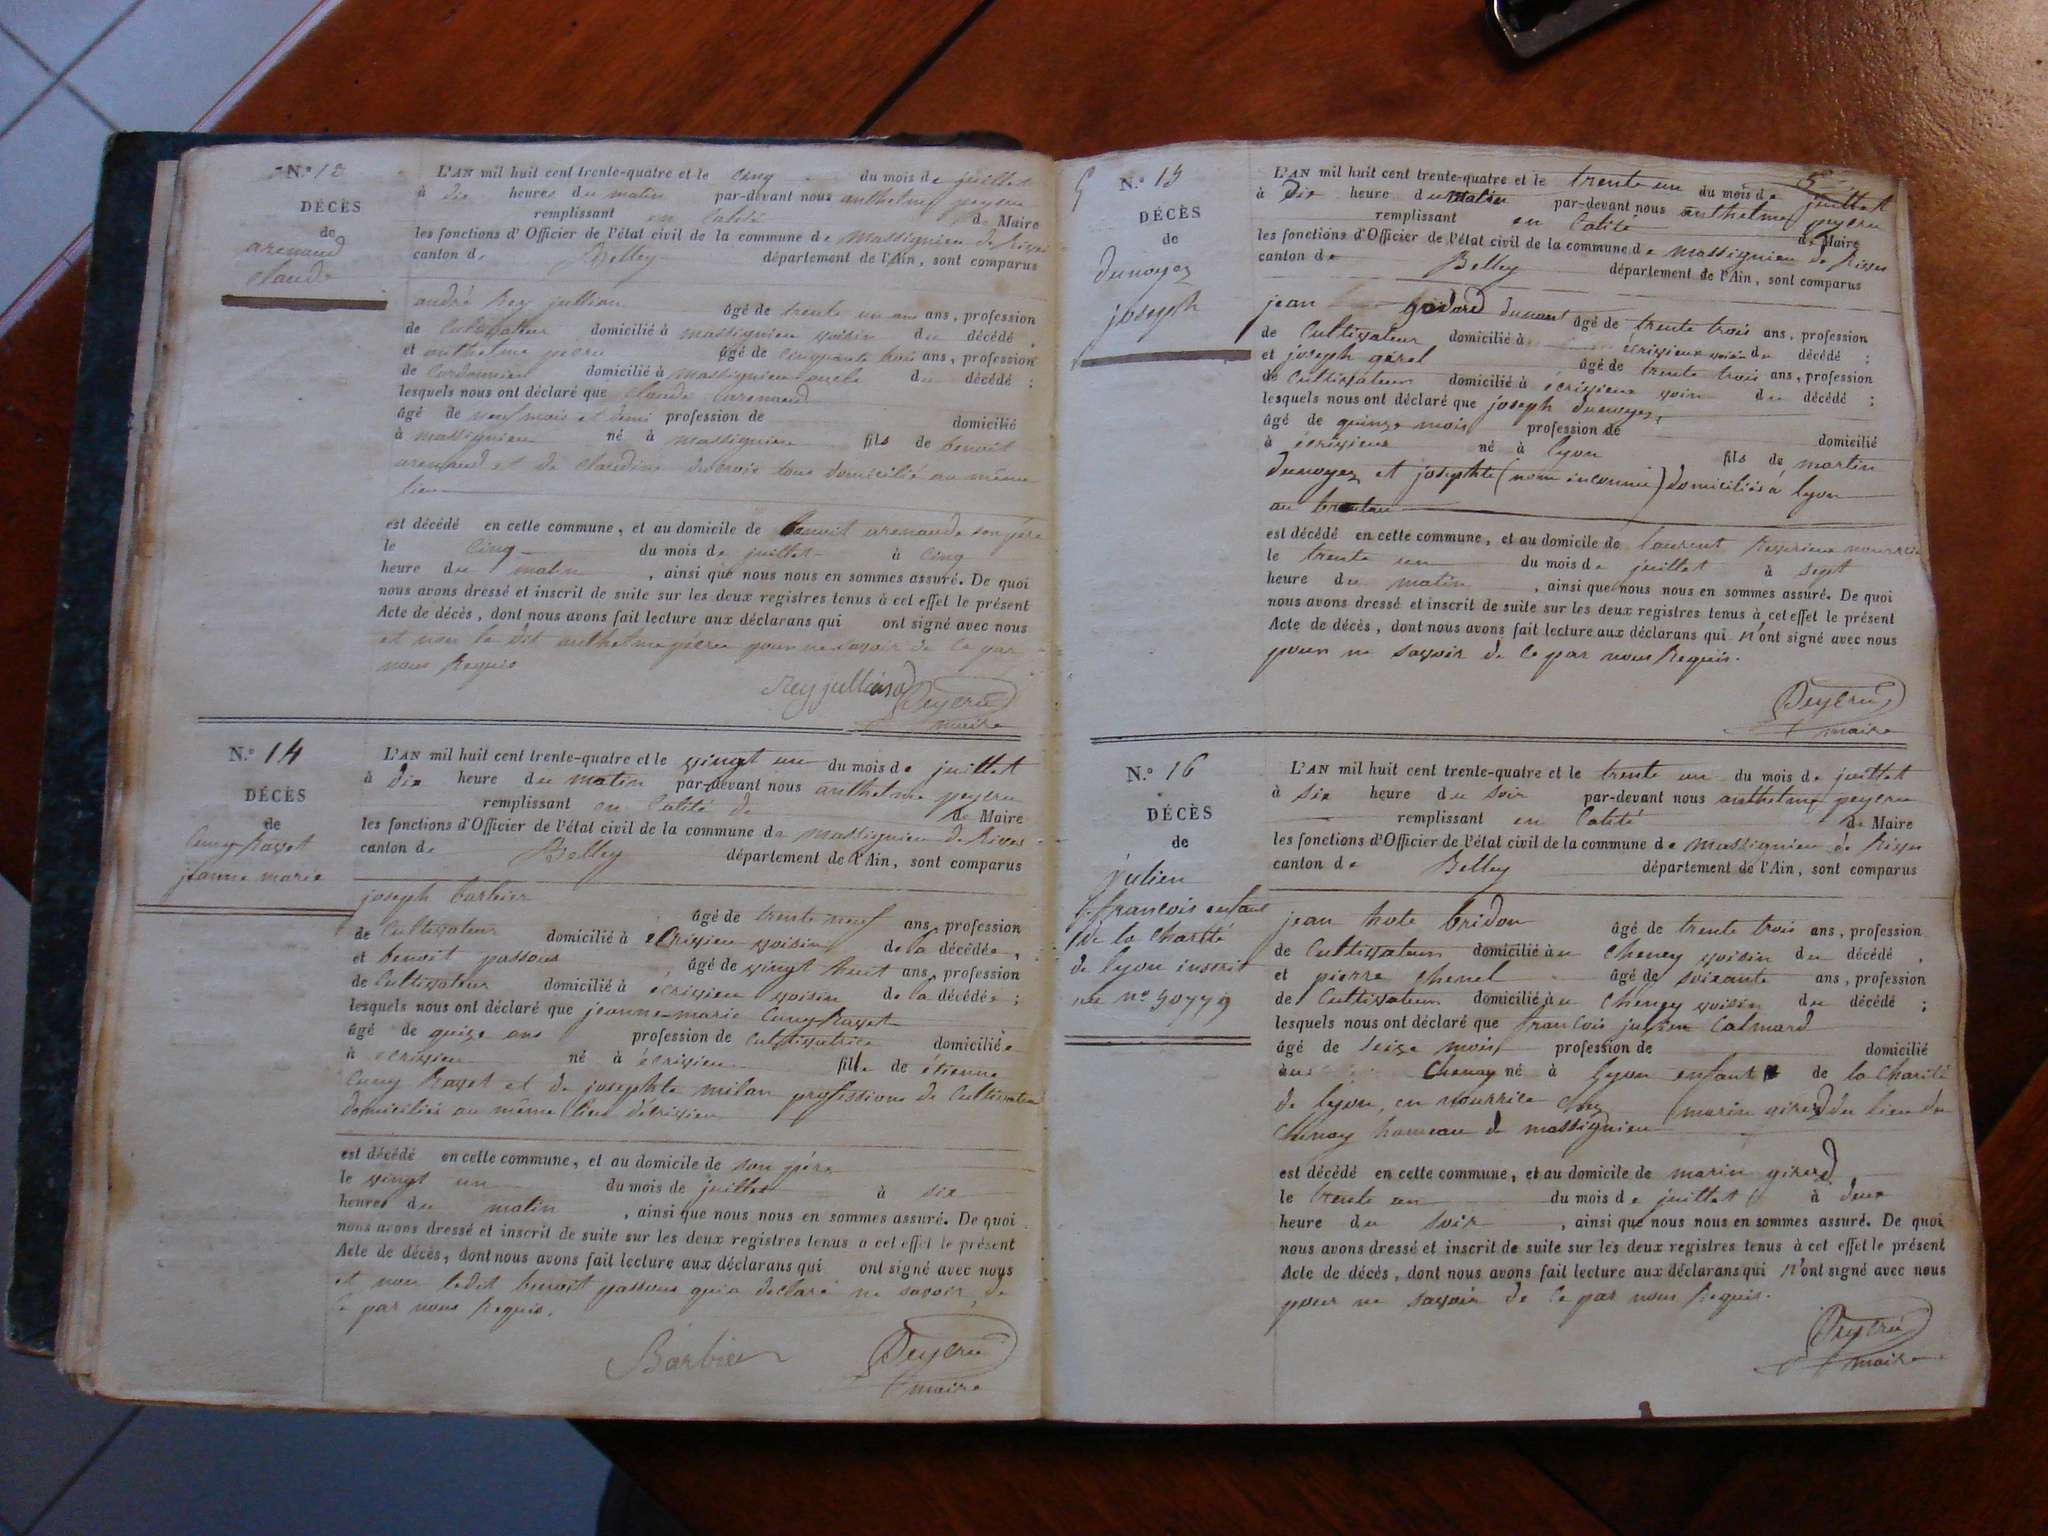 N.º 13
DÉCÈS
de
arenaud
claude
L'AN mil huit cent trente-quatre et le cinq du mois de juillet
à dix heures du matin par-devant nous anthelme peycru
remplissant en calité de Maire
les fonctions d'Officier de l'état civil de la commune de Massignieu de Rives
canton de Belley département de l'Ain, sont comparus
andré Rey jullian âgé de trente un ans ans, profession
de Cultivateur domicilié à massignieu voisin du décédé,
et anthelme âgé de cinquante trois ans, profession
de Cordonnier domicilié à massignieu oncle du décédé;
lesquels nous ont déclaré que Claude arenaud
âgé de neuf mois et demi profession de domicilié
à massignieu né à massignieu fils de benoit
arenaud et de claudine tous domicilié au même
lieu
est décédé en cette commune, et au domicile de benoit arenaud son père
le cinq du mois de juillet à cinq
heure du matin, ainsi que nous nous en sommes assuré. De quoi
nous avons dressé et inscrit de suite sur les deux registres tenus à cet effet le présent
Acte de décès, dont nous avons fait lecture aux déclarans qui ont signé avec nous
et non le dit anthelme pour ne savoir de ce par
nous Requis
Rey jullian Peycru
maire
N.º 14
DÉCÈS
de
Cuny Ravet
jeanne marie
L'AN mil huit cent trente-quatre et le vingt un du mois de juillet
à dix heure du matin par-devant nous anthelme peycru
remplissant en calité de de Maire
les fonctions d'Officier de l'état civil de la commune de massignieu de Rives
canton de Belley département de l'Ain, sont comparus
joseph barbier âgé de trente neuf ans, profession
de Cultivateur domicilié à écrivieu voisin de la décédée,
et benoit passous âgé de vingt huit ans, profession
de Cultivateur domicilié à écrivieu voisin de la décédée;
lesquels nous ont déclaré que jeanne-marie Cuny Ravet
âgé de quize ans profession de cultivatrice domiciliée
à écrivieu né à écrivieu fille de étienne
Cuny Ravet et de josephte milan professions de Cultivateur
domiciliés au même lieu d'écrivieu
est décédé en cette commune, et au domicile de son père
le vingt un du mois de juillet à six
heures du matin, ainsi que nous nous en sommes assuré. De quoi
nous avons dressé et inscrit de suite sur les deux registres tenus à cet effet le présent
Acte de décès, dont nous avons fait lecture aux déclarans qui ont signé avec nous
et non ledit benoit passous qui a declaré ne savoir de
ce par nous Requis.
Barbier Peycru
maire
N.º 15
DÉCÈS
de
dunoyez
joseph
L'AN mil huit cent trente-quatre et le trente un du mois de juillet
à Dix heure du matin par-devant nous anthelme peycru
remplissant en calité de Maire
les fonctions d'Officier de l'état civil de la commune de massignieu de Rives
canton de Belley département de l'Ain, sont comparus
jean dunant âgé de trente trois ans, profession
de Cultivateur domicilié à écrivieux voisin du décédé;
et joseph gérel âgé de trente trois ans, profession
de Cultivateur domicilié à écrivieux voisin du décédé;
lesquels nous ont déclaré que joseph dunoyez
âgé de quinze mois profession de domicilié
à écrivieux né à lyon fils de martin
dunoyez et josephte (nom inconnu) domiciliés à lyon
au
est décédé en cette commune, et au domicile de laurent
le trente un du mois de juillet à sept
heure du matin, ainsi que nous nous en sommes assuré. De quoi
nous avons dressé et inscrit de suite sur les deux registres tenus à cet effet le présent
Acte de décès, dont nous avons fait lecture aux déclarans qui n'ont signé avec nous
pour ne savoir de ce par nous Requis.
Peycru
maire
N.º 16
DÉCÈS
de
julien
françois enfant
de la charité
de lyon inscrit
L'AN mil huit cent trente-quatre et le trente un du mois de juillet
à six heure du soir par-devant nous anthelme peycru
remplissant en calité de Maire
les fonctions d'Officier de l'état civil de la commune de massignieu de Rives
canton de Belley département de l'Ain, sont comparus
jean hote bridon âgé de trente trois ans, profession
de Cultivateur domicilié au cheney voisin du décédé,
et pierre chenel âgé de soixante ans, profession
de Cultivateur domicilié au cheney voisin du décédé;
lesquels nous ont déclaré que françois julien Calmard
âgé de seize mois profession de domicilié
au Chenay né à lyon enfant de la Charité
de lyon, en nourrice chez marin girerd du lieu du
chenay hameau de massignieu
est décédé en cette commune, et au domicile de marin girerd
le trente un du mois de juillet à deux
heure du soir, ainsi que nous nous en sommes assuré. De quoi
nous avons dressé et inscrit de suite sur les deux registres tenus à cet effet le présent
Acte de décès, dont nous avons fait lecture aux déclarans qui n'ont signé avec nous
pour ne savoir de ce par nous Requis.
Peycru
maire